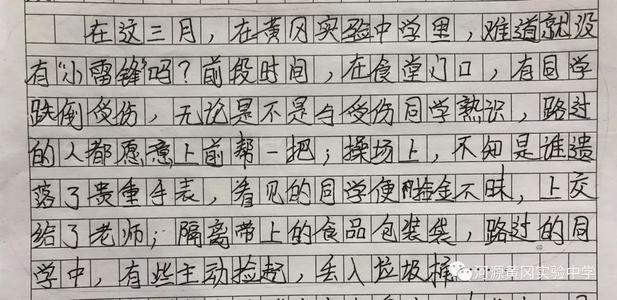 在这三月，在黄冈实验中学里，难道就没
有“小雷锋”吗？前段时间，在食堂门口，有同学
跌倒受伤，无论是不是与受伤同学熟识，路过
的人都愿意上前帮一把；操场上，不知是谁遗
落了贵重手表，看见的同学便拾金不昧，上交
给了老师；隔离带上的食品包装袋，路过的同
学中，有些主动捡起，丢入垃圾桶
河源黄冈实验中学